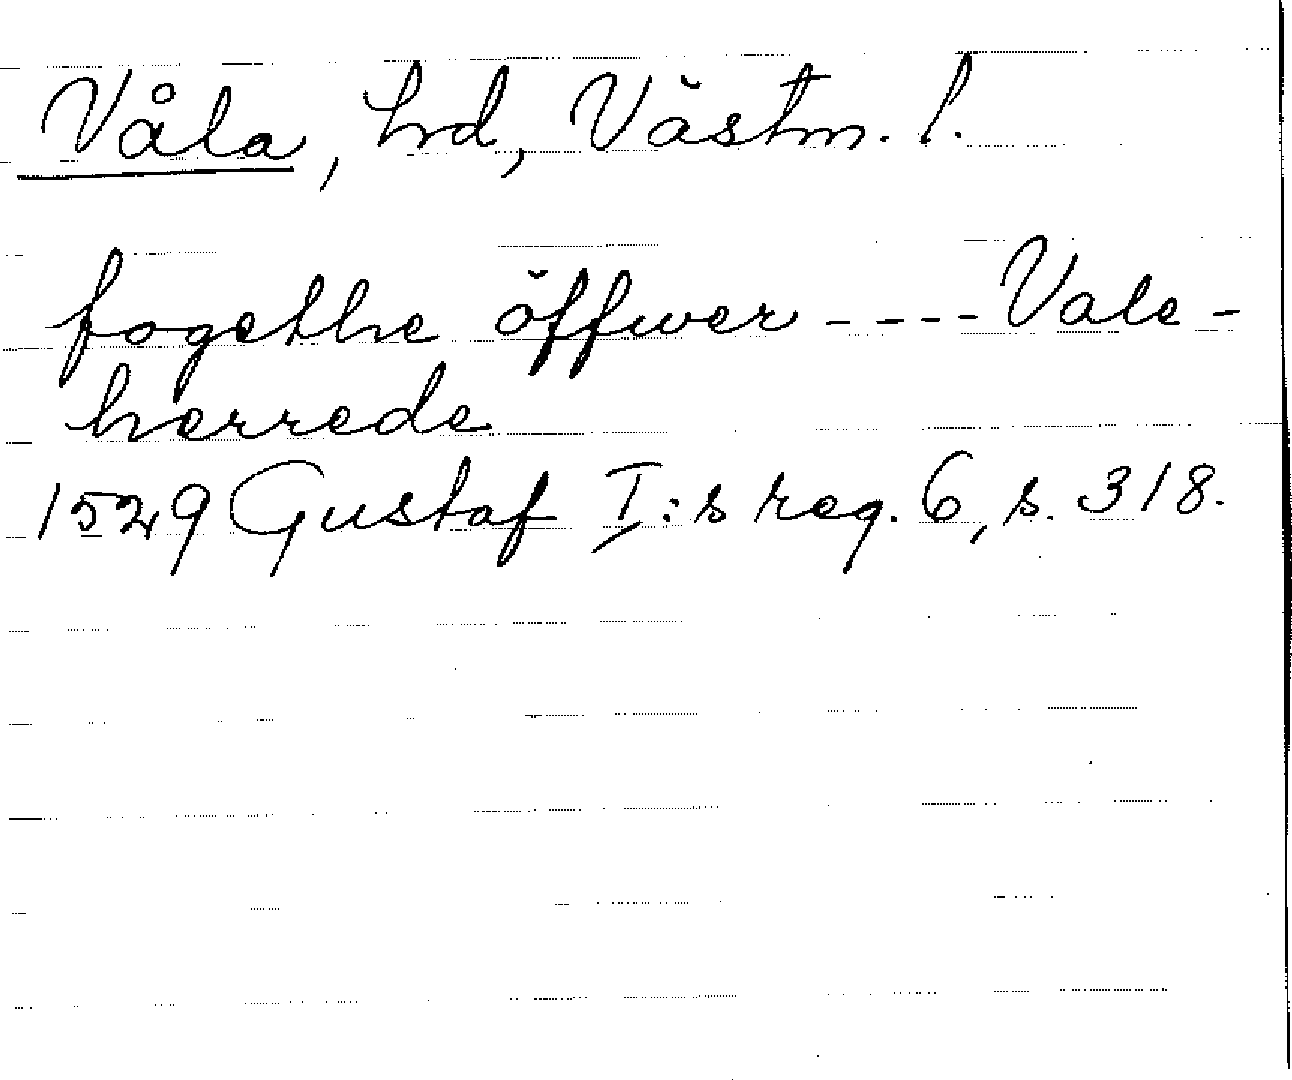 Våla, hd, Västm. l.
fogethe öffwer ---- Vale-
herrede
1529 Gustaf I:s reg. 6, s. 318.